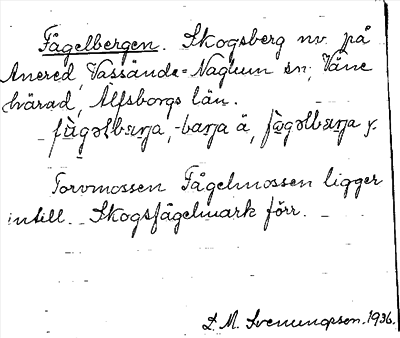 Fågelbergen. Skogsberg nv. på
Anered, Vassända-Naglum sn, Väne
härad, Älfsborgs län.
fùgəlbæŋa, -baŋa ä, fùgəlbæŋa y.
Torvmossen Fågelmossen ligger
intill. Skogsfågelmark förr.
L. M. Svenungsson. 1936.